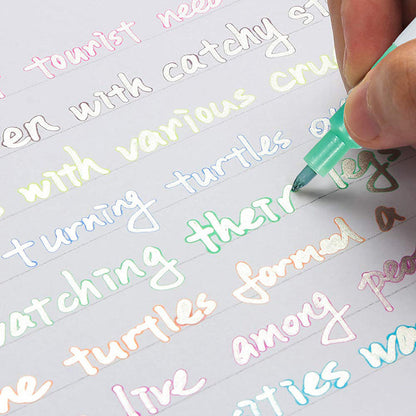 tourist need
en with catchy st
with various cru
turning turtles
watching their legs
ne turtles formed a
live among pea
cities wa